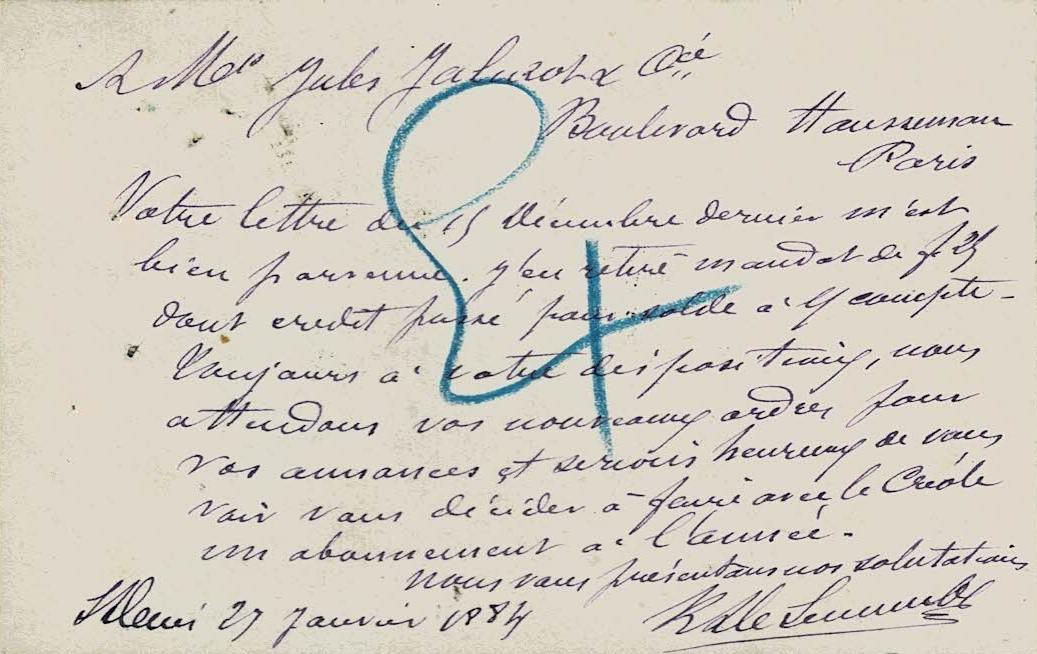 A Mrs Jules Jaluzot & Cie
Boulevard Haussmann
Paris
Votre lettre du 15 Décembre dernier m'est
bien parvenue. J'ai retiré mandat de f 25
dont credit passé pour solde à /compte -
Toujours à votre disposition, nous
attendons vos nouveaux ordres pour
vos annonces et serions heureux de vous
voir vous décider à faire avec le Créole
un abonnement à l'année.
Nous vous présentons nos salutations
St Denis 27 Janvier 1884